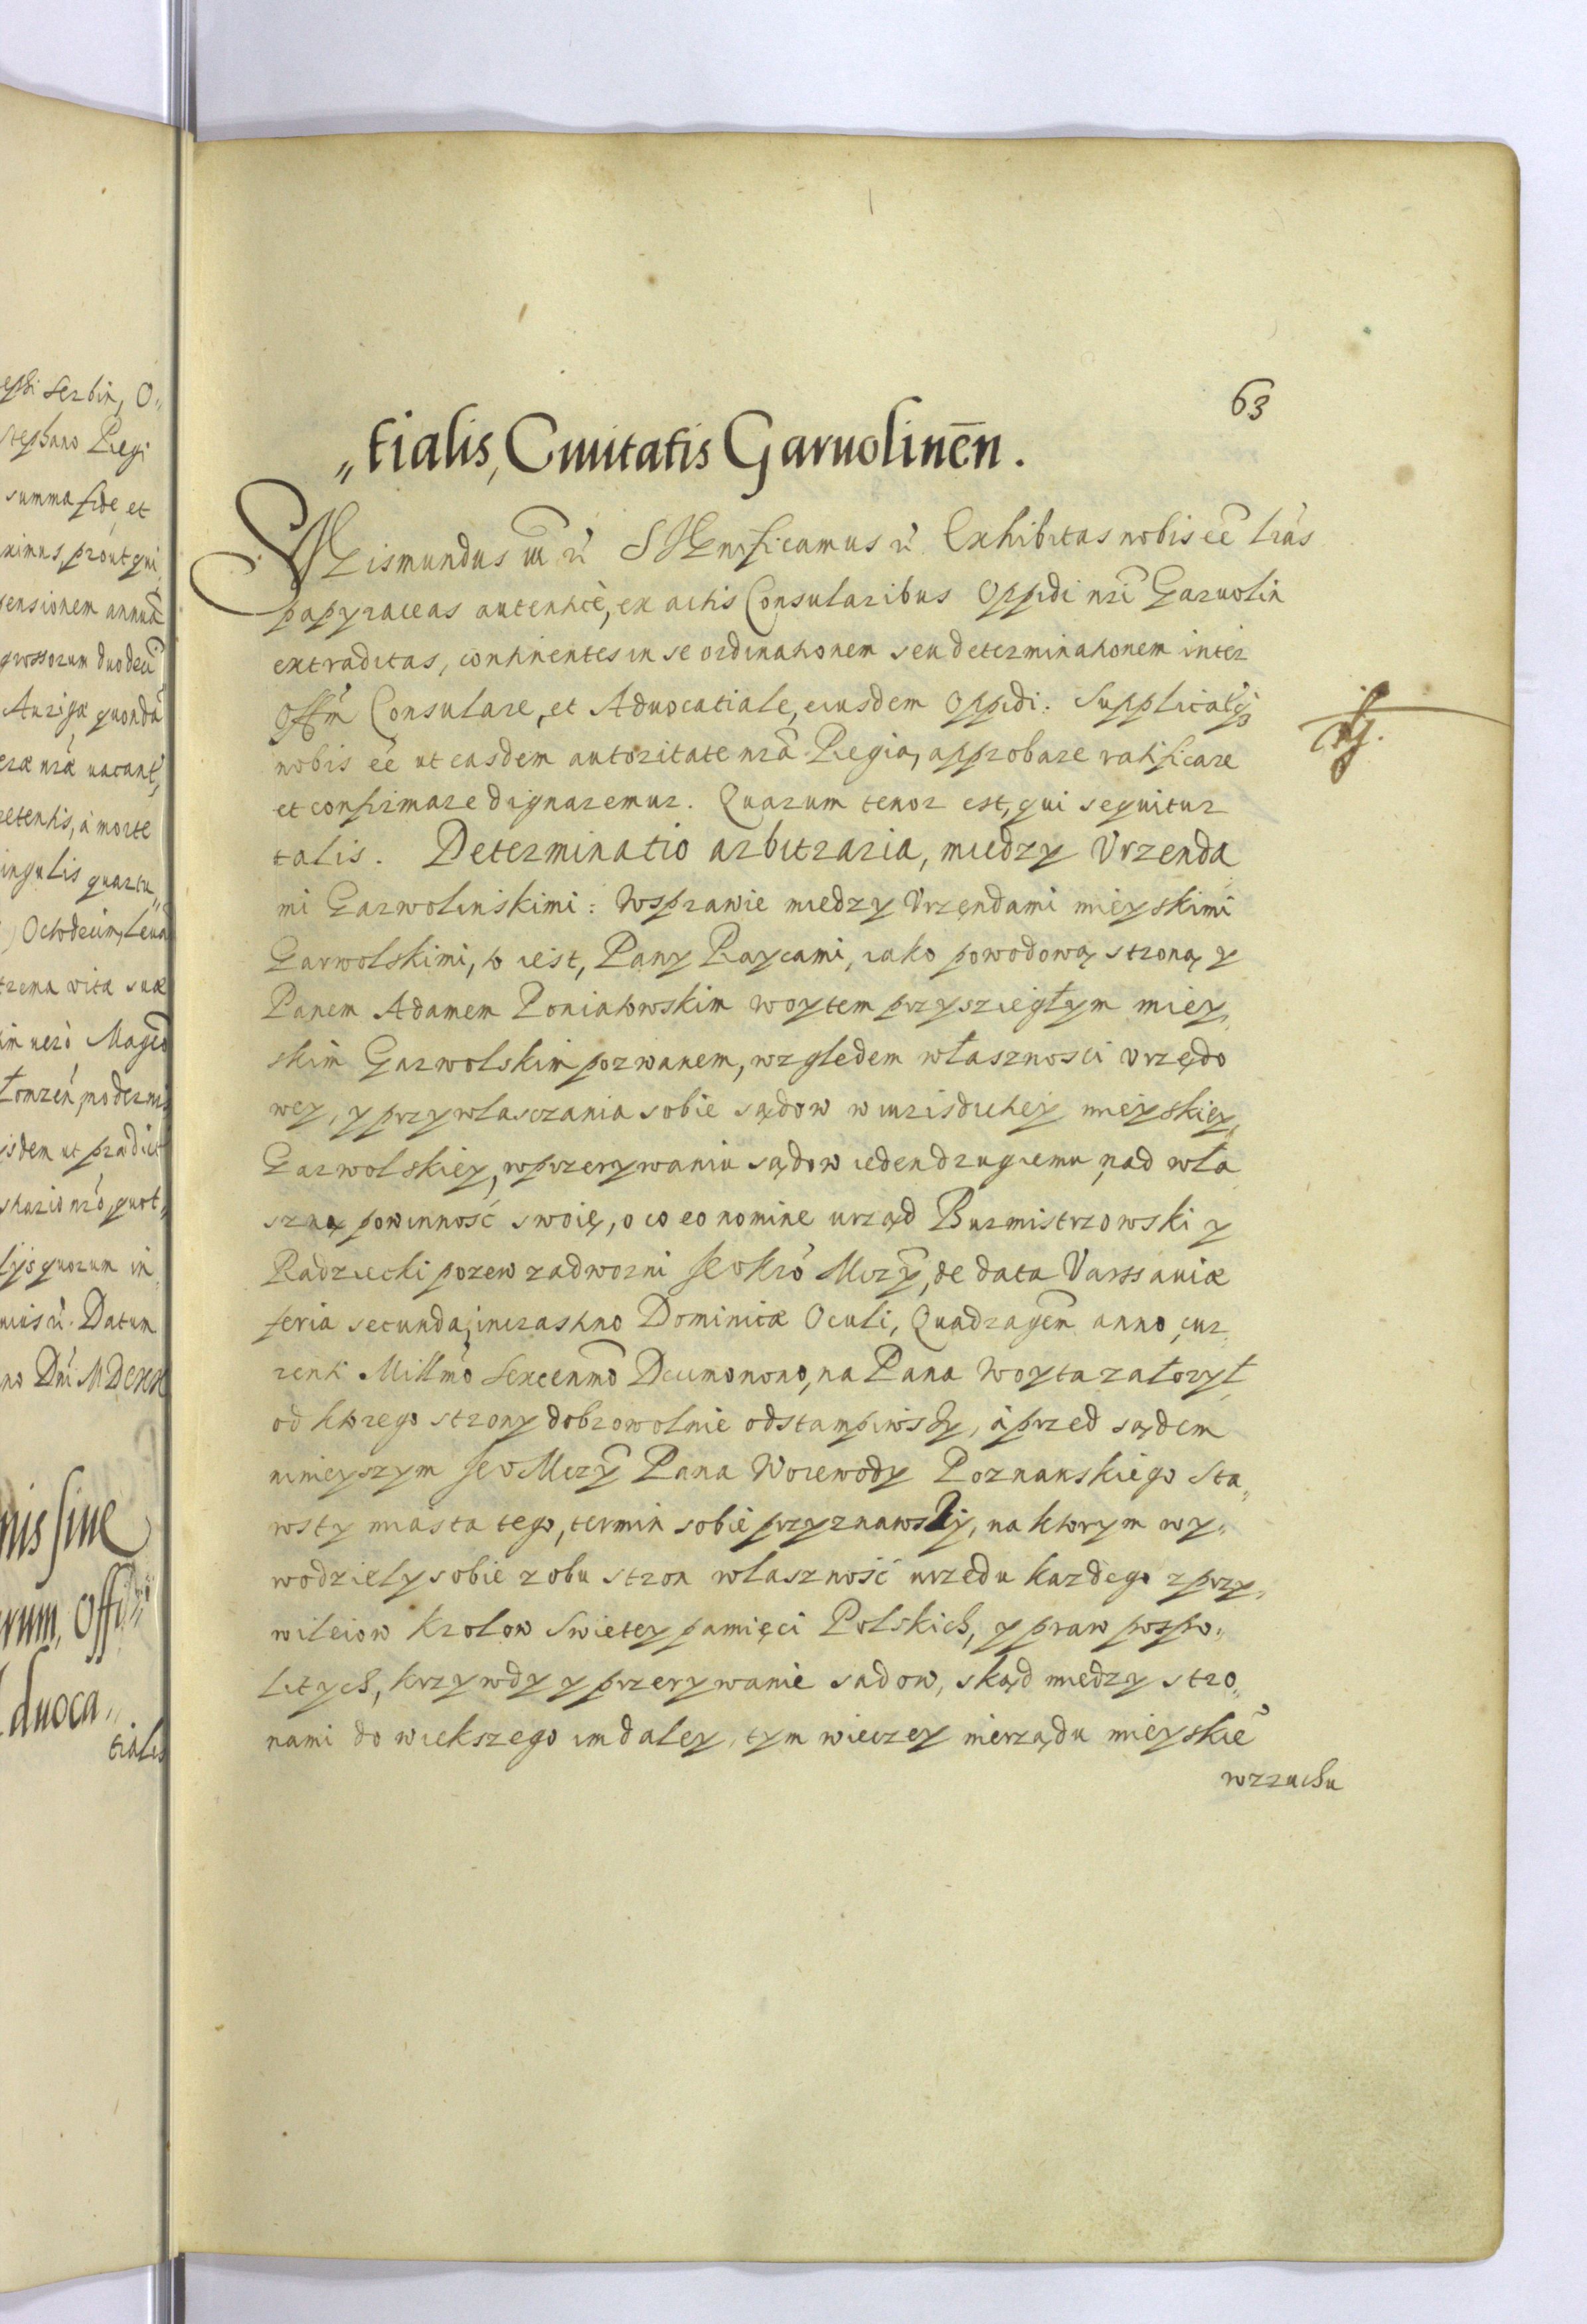 ephi Serbin, O„
Stephano Regi
summa fide, et
ximus, prout qui
pensionem annuā
grossorum duodeci
Aurigæ quondā
eræ nr̄æ uacant„
retentis, à morte
ingulis quartu„
Octodecim, leua
trema vitæ suæ
in uerò Magco
Łomzeń, moderni
isdem ut prædict
sharionrō, quot„
lijs quorum in„
uius ř. Datum
no Dnī MDCXX
nis siue
rum, Offi„
duoca„
tialis
63
„tialis, Ciuitatis Garuolinēn.
Sigismundus III ř Significamus ř Exhibitas nobis eē lrās
papyraceas autenticè, ex actis Consularibus Oppidi nrī Garuolin
extraditas, continentes in se ordinationem seu determinationem inter
Offm̄ Consulare, et Aduocatiale, eiusdem Oppidi: Supplicatūq;
nobis eē ut easdem autoritate nrā Regia, approbare ratificare
et confirmare dignaremur. Quarum tenor est, qui sequitur
talis. Determinatio arbitraria, miedzy Vrzenda
mi Garwolinskimi: Wsprawie miedzy Vrzędami mieyskimi
Garwolskimi, to iest, Pany Raycami, iako powodową stroną y
Panem Adamem Poniatowskim woytem przysziegłym miey„
skim Garwolskim pozwanem, względem własznosci vrzędo
wey, y przywlasczania sobie sądow w iurisdictiey mieyskiey,
Garwolskiey, w przerywaniu sądow ieden drugiemu, nad wła
szną powinność swoię, o co eo nomine urząd Burmistrzowski y
Radziecki pozew zadworni Je° Kró Mczÿ, de data Varssauiæ
feria secunda, in crastino Dominicæ Oculi, Quadragem̄ anno, cur„
renti Millm̄o Sexcenm̄o Decimonono, na Pana Woyta założył,
od ktorego strony dobrowolnie odstampiwszy, à przed sądem
ninieyszym Je° Mczÿ Pana Woiewody Poznanskiego Sta„
rosty miasta tego, termin sobie przyznawszy, na ktorym wy„
wodziely sobie z obu stron własznosć urzedu kazdego z przy„
wileiow Krolow Swietey pamięci Polskich, y praw pospo„
litych, krzywdy y przerywanie sadow, skąd miedzy stro„
nami do wiekszego im daley, tym wieczey nierządu mieyskie°
wzruchu